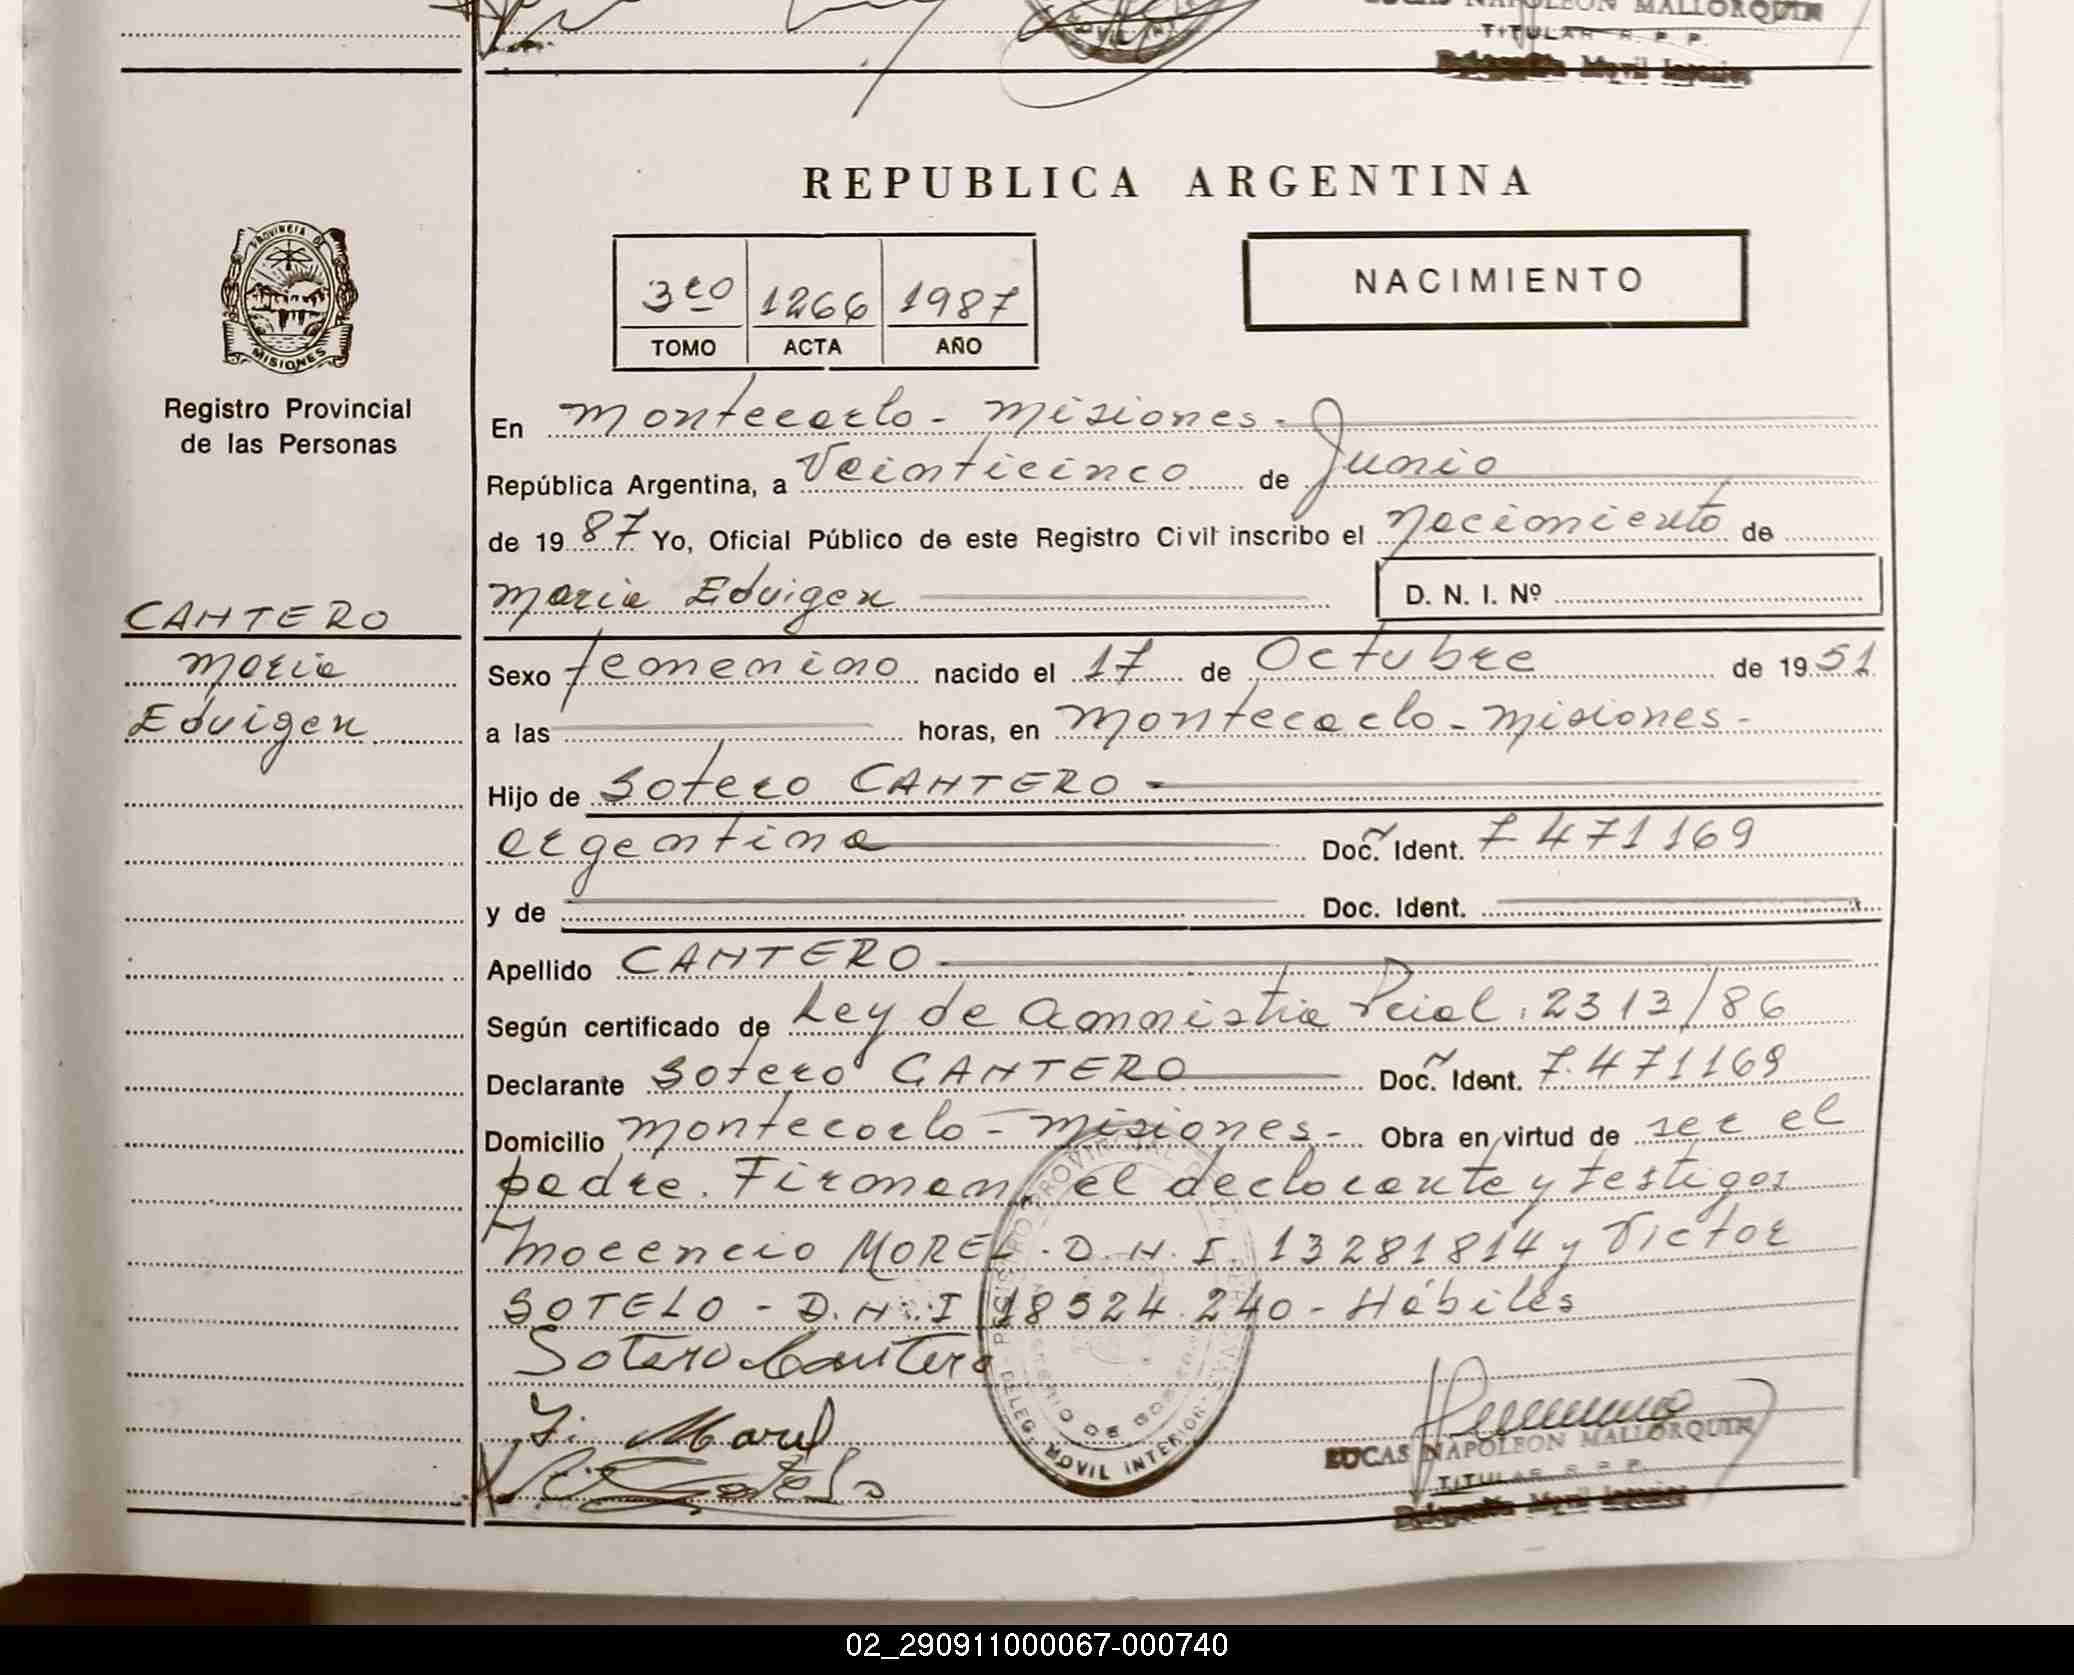 LUCAS NAPOLEON MALLORQUIN
TITULAR R. P. P.
Delegación Movil Interior
REPUBLICA ARGENTINA
PROVINCIA DE
MISIONES
Registro Provincial
de las Personas
3ro 1266 1987
TOMO ACTA AÑO
NACIMIENTO
En Montecarlo - Misiones -
República Argentina, a Veinticinco de Junio
de 1987 Yo, Oficial Público de este Registro Civil inscribo el Nacimiento de
Maria Eduigex D. N. I. Nº
CANTERO
Maria
Eduigex
Sexo femenino nacido el 17 de Octubre de 1951
a las horas, en Montecarlo - Misiones -
Hijo de Sotero CANTERO -
argentina Doc. Ident. 7.471169
y de Doc. Ident.
Apellido CANTERO -
Según certificado de Ley de Amnistia Pcial. 2313/86
Declarante Sotero CANTERO Doc. Ident. 7.471169
Domicilio Montecarlo - Misiones - Obra en virtud de ser el
padre. Firman, el declarante y testigos
Inocencio MOREL. D.N.I 13281814 y Victor
SOTELO - D.N.I 18524.240 - Hábiles
Sotero Cantero
I. Morel
REGISTRO PROVINCIAL DE LAS PERSONAS
MINISTERIO DE GOBIERNO
DELEG. MOVIL INTERIOR
LUCAS NAPOLEON MALLORQUIN
TITULAR R. P. P.
Delegación Movil Interior
02_290911000067-000740